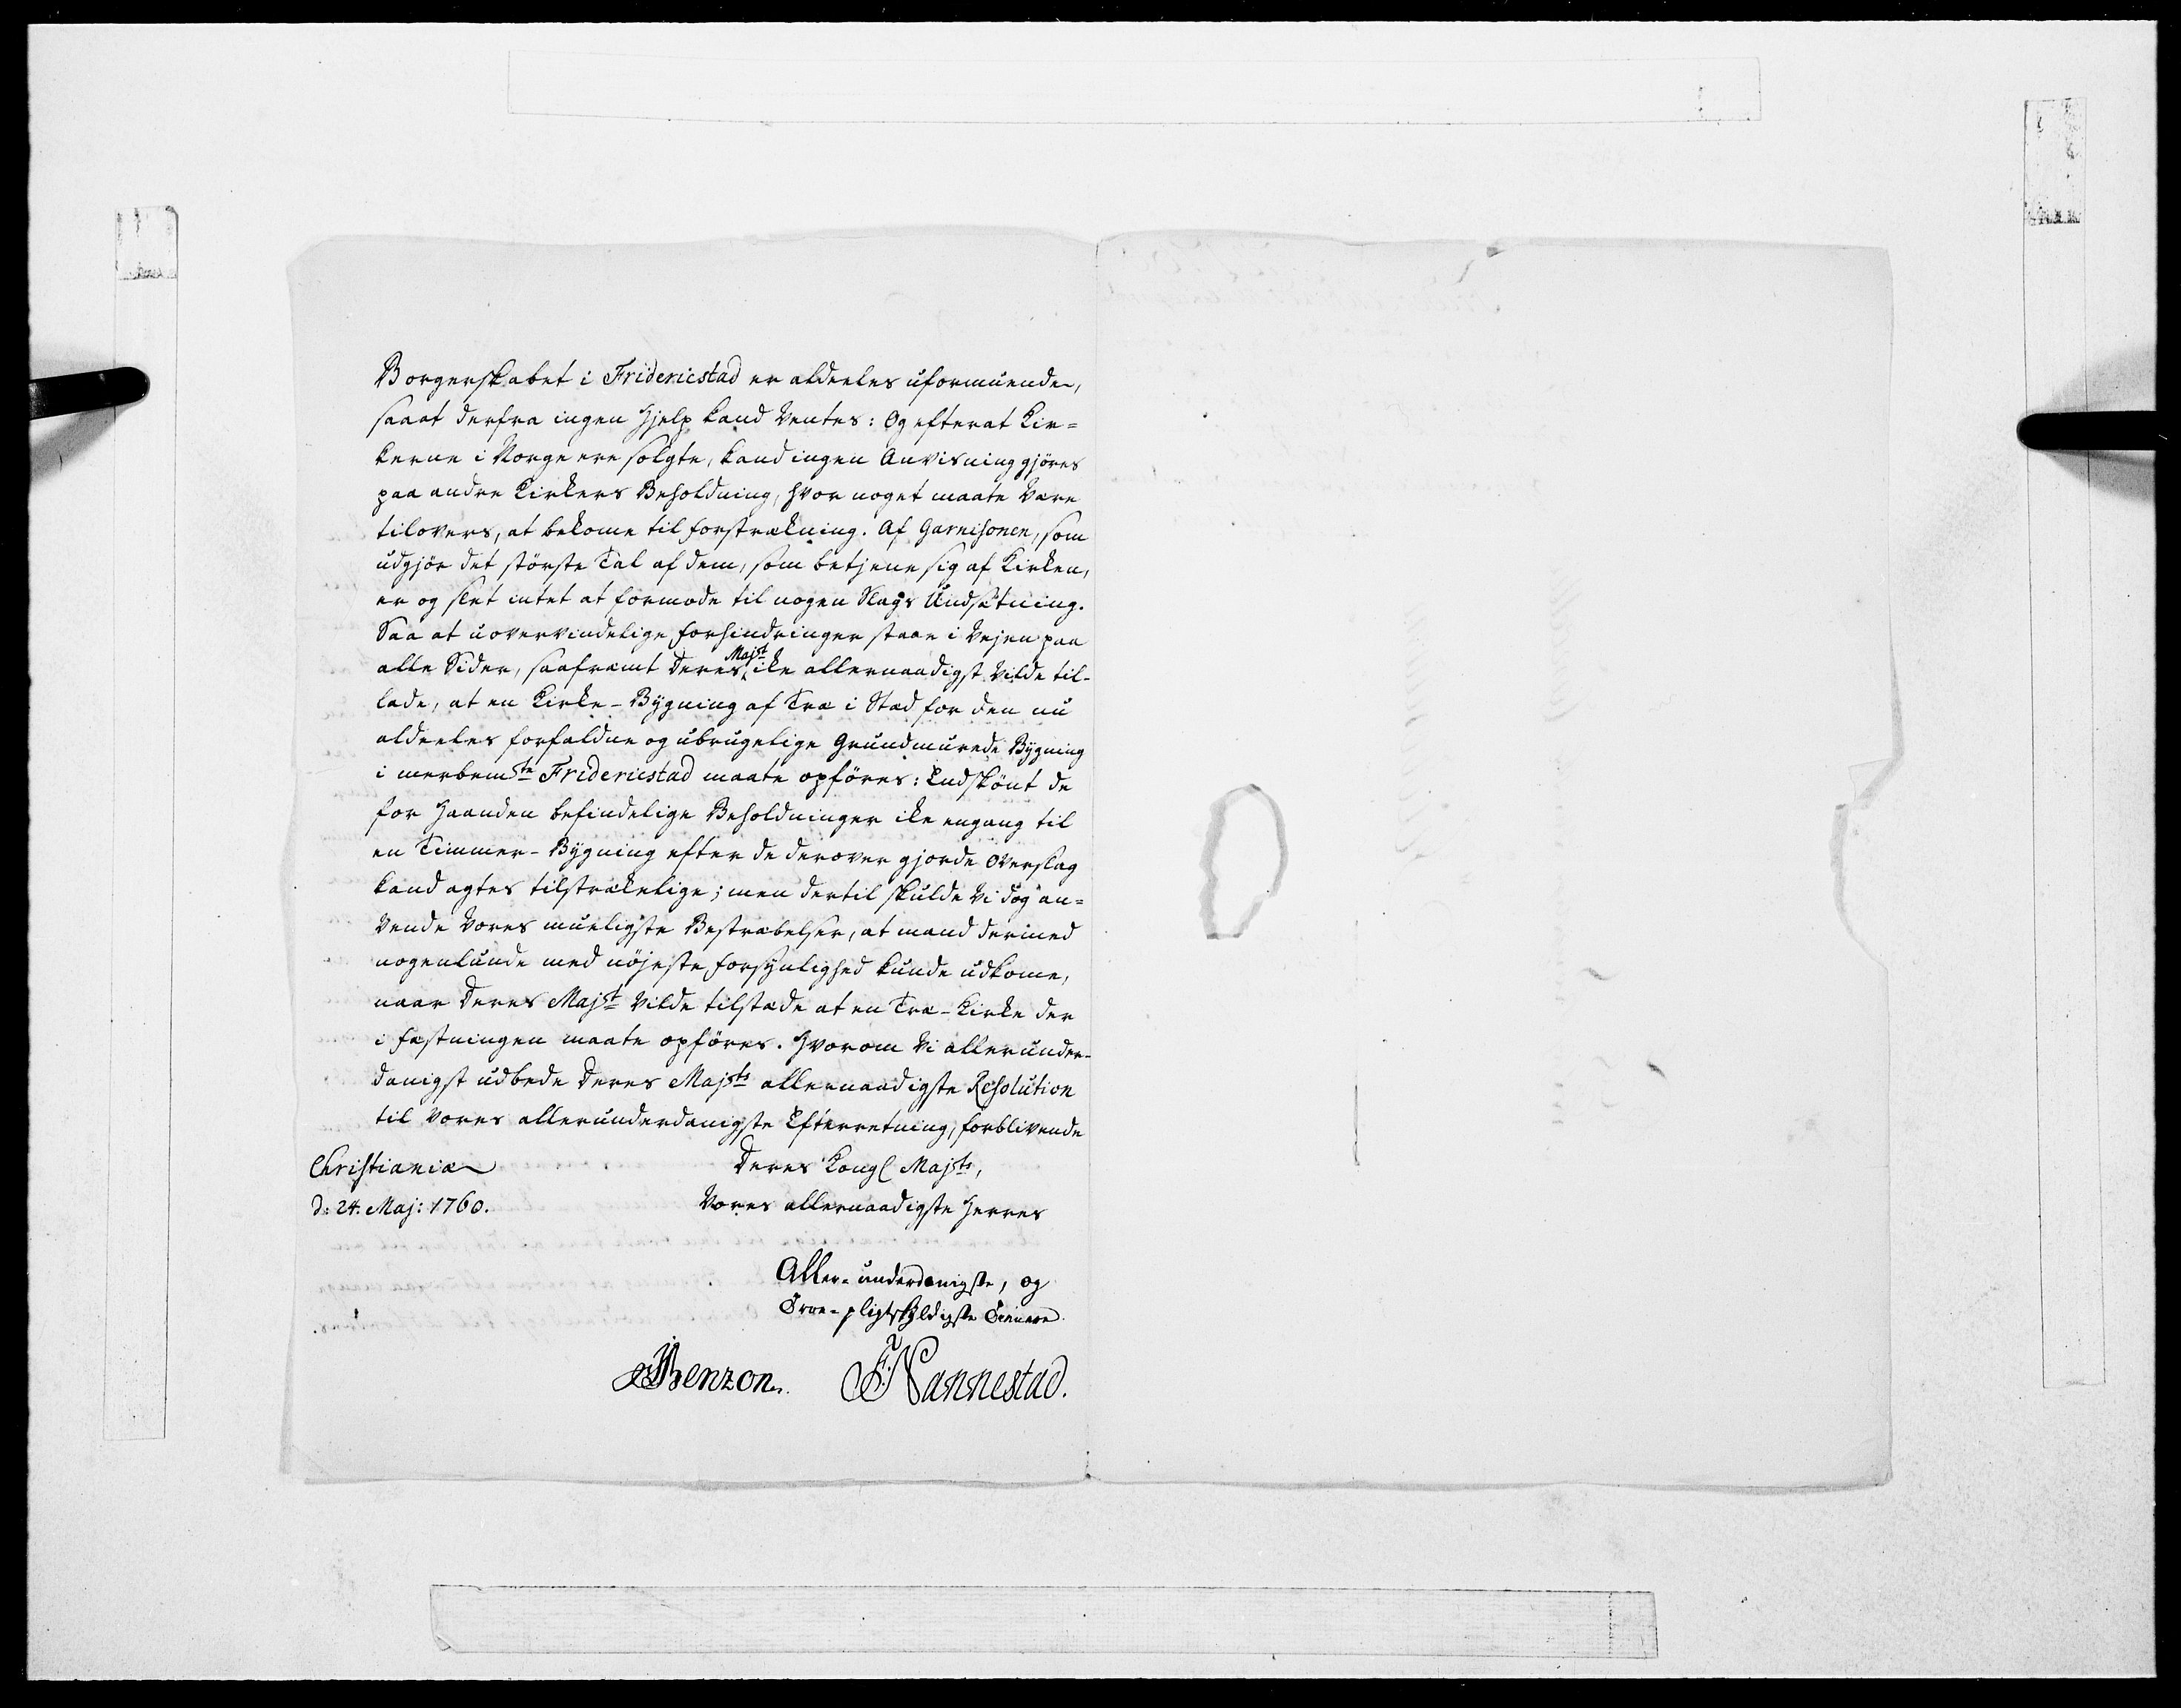 Borgerskabet i Fridericstad er aldeeles uformuende,
saaat derfra ingen Hjelp kand Ventes: Og efterat Kir=
kerne i Norge ere solgte, kand ingen Anvisning gjöres
paa andre Kirkers Beholdning, hvor noget maate Være
tilovers, at bekome til forstrækning. Af Garnisonen, som
udgjör det störste Tal af dem, som betjene sig af Kirken,
er og slet intet at formode til nogen Slags Undsætning.
Saa at uovervindelige forhindringer staae i Vejen paa
alle Sider, saaframt Deres Majst ike allernaadigst Vilde til-
lade, at en Kirke-Bÿgning af Træ i Stæd for den nu
aldeeles forfaldne og ubrugelige Grundmurede Bÿgning
i merbemte Fridericstad maate opföres: Endskönt de
for Haanden befindelige Beholdninger ike engang til
en Timmer-Bÿgning efter de derover gjorde Overslag
kand agtes tilstrækelige; men dertil skulde Vi dog an=
Vende Vores mueligste Bestræbelser, at mand dermed
nogenlunde med nöjeste forsÿnlighed kunde udkome,
naar Deres Majst Vilde tilstæde at en Træ-Kirke der
i fæstningen maate opföres. Hvorom Vi allerunder-
danigst udbede Deres Majsts allernaadigste Resolution
til Vores allerunderdanigste Efterretning, forblivende
Christiania
Deres Kongl Majsts,
d: 24. Maj: 1760.
Vores allernaadigste Herres
Aller-underdanigste, og
Troe-pligtskÿldigste Tienere
Benzon.
F. Nannestad.